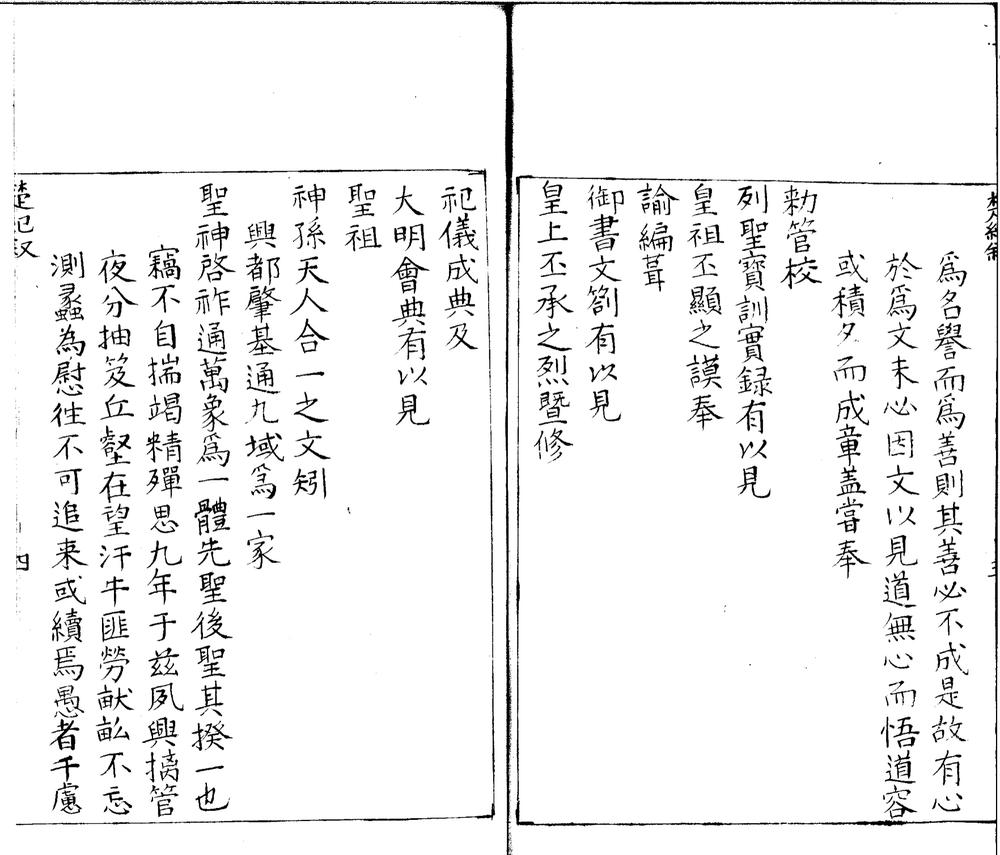 爲名譽而爲善則其善必不成是故有心
於爲文未必因文以見道無心而悟道容
或積久而成章蓋嘗奉
勑管校
列聖寶訓實録有以見
皇祖丕顯之謨奉
諭編葺
御書文劄有以見
皇上丕承之烈暨修
祀儀成典及
大明會典有以見
聖祖
神孫天人合一之文矧
興都肇基通九域爲一家
聖神啓祚通萬象爲一體先聖後聖其揆一也
竊不自揣竭精殫思九年于兹夙興摛管
夜分抽笈丘壑在望汗牛匪勞猷畝不忘
測蠡為慰徃不可追来或續焉愚者千慮
楚紀叙
四